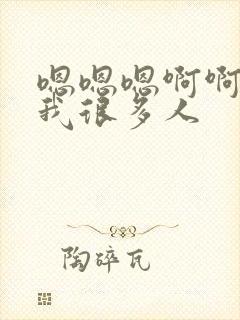 嗯嗯嗯啊啊
我很多人
陶碎瓦